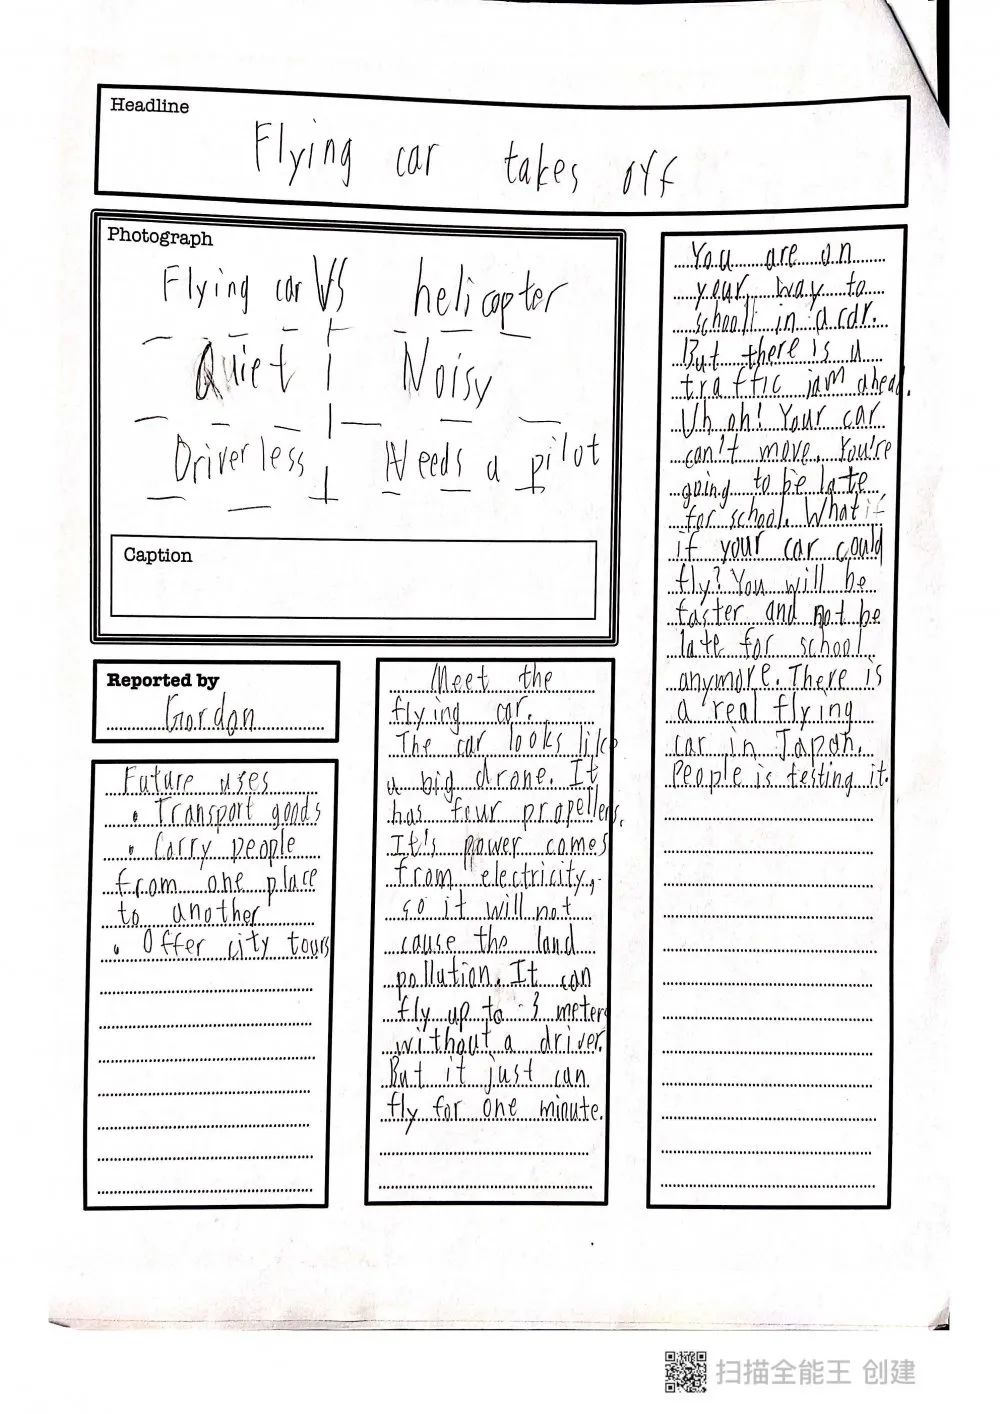 Headline
Flying car takes off
Photograph
Flying car VS helicopter
Quiet Noisy
Driverless Needs a pilot
Caption
Reported by
Gordon
Future uses
• Transport goods
• Carry people
from one place
to another
• Offer city tours
Meet the
flying car.
The car looks like
a big drone. It
has four propellers.
It's power comes
from electricity,
so it will not
cause the land
pollution. It can
fly up to 3 meters
without a driver.
But it just can
fly for one minute.
You are on
your way to
school in a car.
But there is a
traffic jam ahead.
Uh oh! Your car
can't move. You're
going to be late
for school. What if
if your car could
fly? You will be
faster and not be
late for school
anymore. There is
a real flying
car in Japan.
People is testing it.
扫描全能王 创建